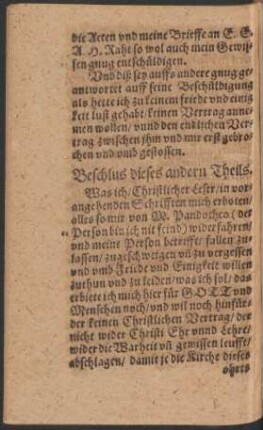 die Acten vnd meine Brieffe an E. E.
A. H. Raht so wol auch mein Gewiss-
sen gnug entschüldigen.
Vnd diß sey auffs andere gnug ge-
antwortet auff seine Beschüldigung
als hette ich zu keinem friede vnd einig
keit lust gehabt/keinen Vertrag anne-
men wollen/ vnnd den endlichen Ver-
trag zwischen jhm vnd mir erst gebro-
chen vnd vmb gestossen.
Beschlus dieses andern Theils.
Was ich/Christlicher Leser/in vor-
angehenden Schrifften mich erboten/
alles so mir von M. Pandocheo (der
Person bin ich nit feind) widerfahren/
vnd meine Person betrifft/ fallen zu-
lassen/ zugeschweigen vñ zu vergessen
vnd vmb Friede vnd Einigkeit willen
zuthun vnd zu leiden/was ich sol/ das
erbiete ich mich hier für GOTT vnd
Menschen noch/vnd wil noch hinfürs
der keinen Christlichen Vertrag/ der
nicht wider Christi Ehr vnnd Lehre/
wider die Warheit vñ gewissen leuffe/
abschlagen/ damit je die Kirche dieses
ohrts